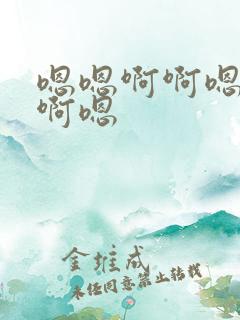 嗯嗯啊啊嗯
啊嗯
金维成
未经同意禁止转载